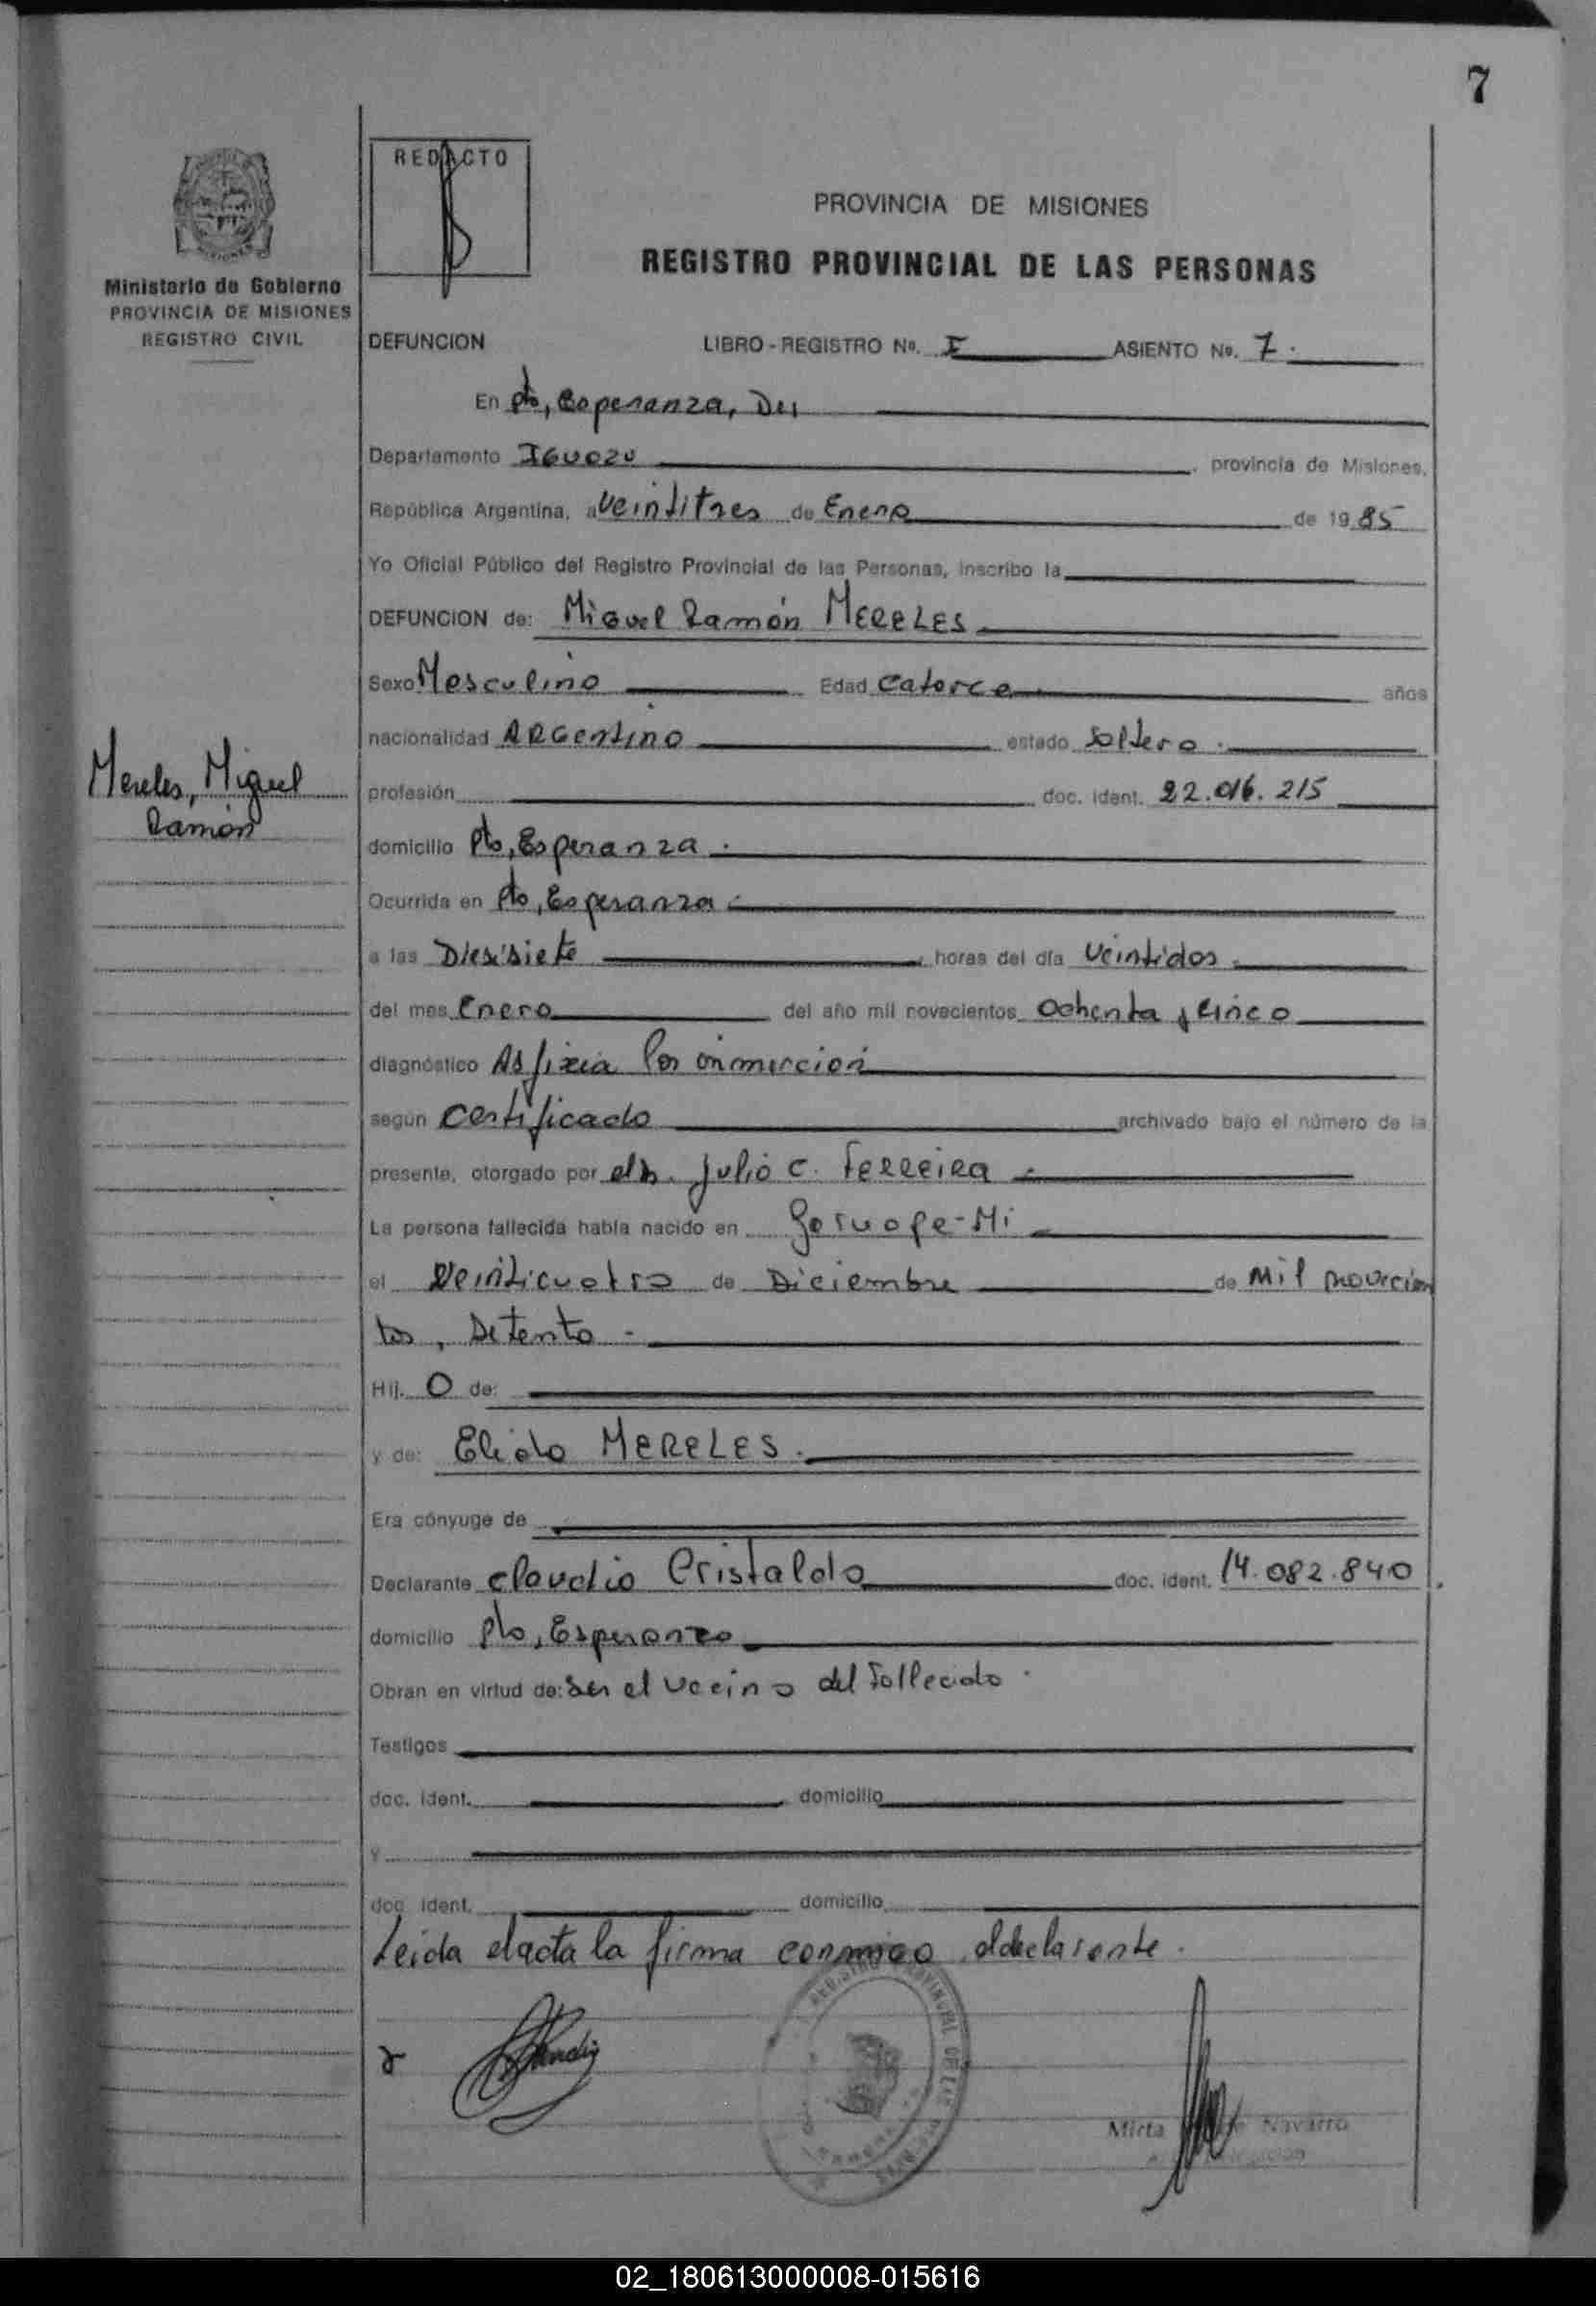 7
REDACTO
PROVINCIA DE MISIONES
REGISTRO PROVINCIAL DE LAS PERSONAS
Ministerio de Gobierno
PROVINCIA DE MISIONES
REGISTRO CIVIL
DEFUNCION LIBRO - REGISTRO No. I ASIENTO No. 7.
En Pto, Esperanza, Del
Departamento IGUOZU, provincia de Misiones,
República Argentina, a Veintitres de Enero de 1985
Yo Oficial Público del Registro Provincial de las Personas, inscribo la
DEFUNCION de: Miguel Ramón MERELES
Sexo Masculino Edad Catorce años
nacionalidad ARGentino estado Soltero.
Mereles, Miguel
Ramón
profesión doc. ident. 22.016.215
domicilio Pto, Esperanza.
Ocurrida en Pto, Esperanza
a las Diesisiete horas del día Veintidos
del mes Enero del año mil novecientos Ochenta y Cinco
diagnóstico Asfixia Por inmercion
según Certificado archivado bajo el número de la
presente, otorgado por el Dr. Julio C. FERREIRA
La persona fallecida había nacido en Garuape-Mi
el Veinticuatro de Diciembre de Mil novecien
tos, Setenta
Hij. O de:
y de: Elida MERELES.
Era cónyuge de
Declarante Claudio Cristaldo doc. ident. 14.082.840
domicilio Pto, Esperanza
Obran en virtud de: Ser el vecino del Fallecido.
Testigos
doc. ident. domicilio
y
doc. ident. domicilio
Leida el acta la firma conmigo el declarante.
REGISTRO PROVINCIAL DE LAS PERSONAS
Mirta Navarro
02_180613000008-015616